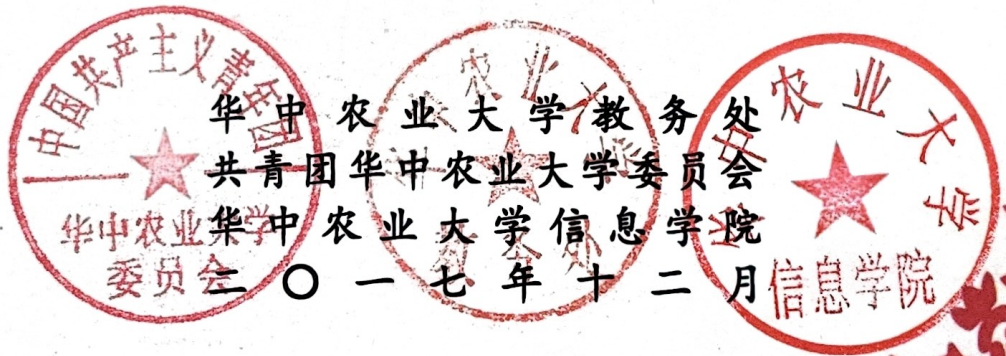 华中农业大学教务处
共青团华中农业大学委员会
华中农业大学信息学院
二〇一七年十二月
中国共产主义青年团
华中农业大学
委员会
华中农业大学
教务处
华中农业大学
信息学院